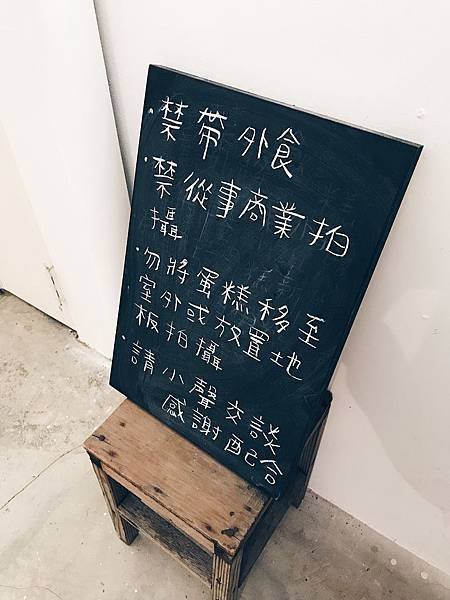 ·禁帶外食
·禁從事商業拍
攝
·勿將蛋糕移至
室外或放置地
板拍攝
·請小聲交談
感謝配合